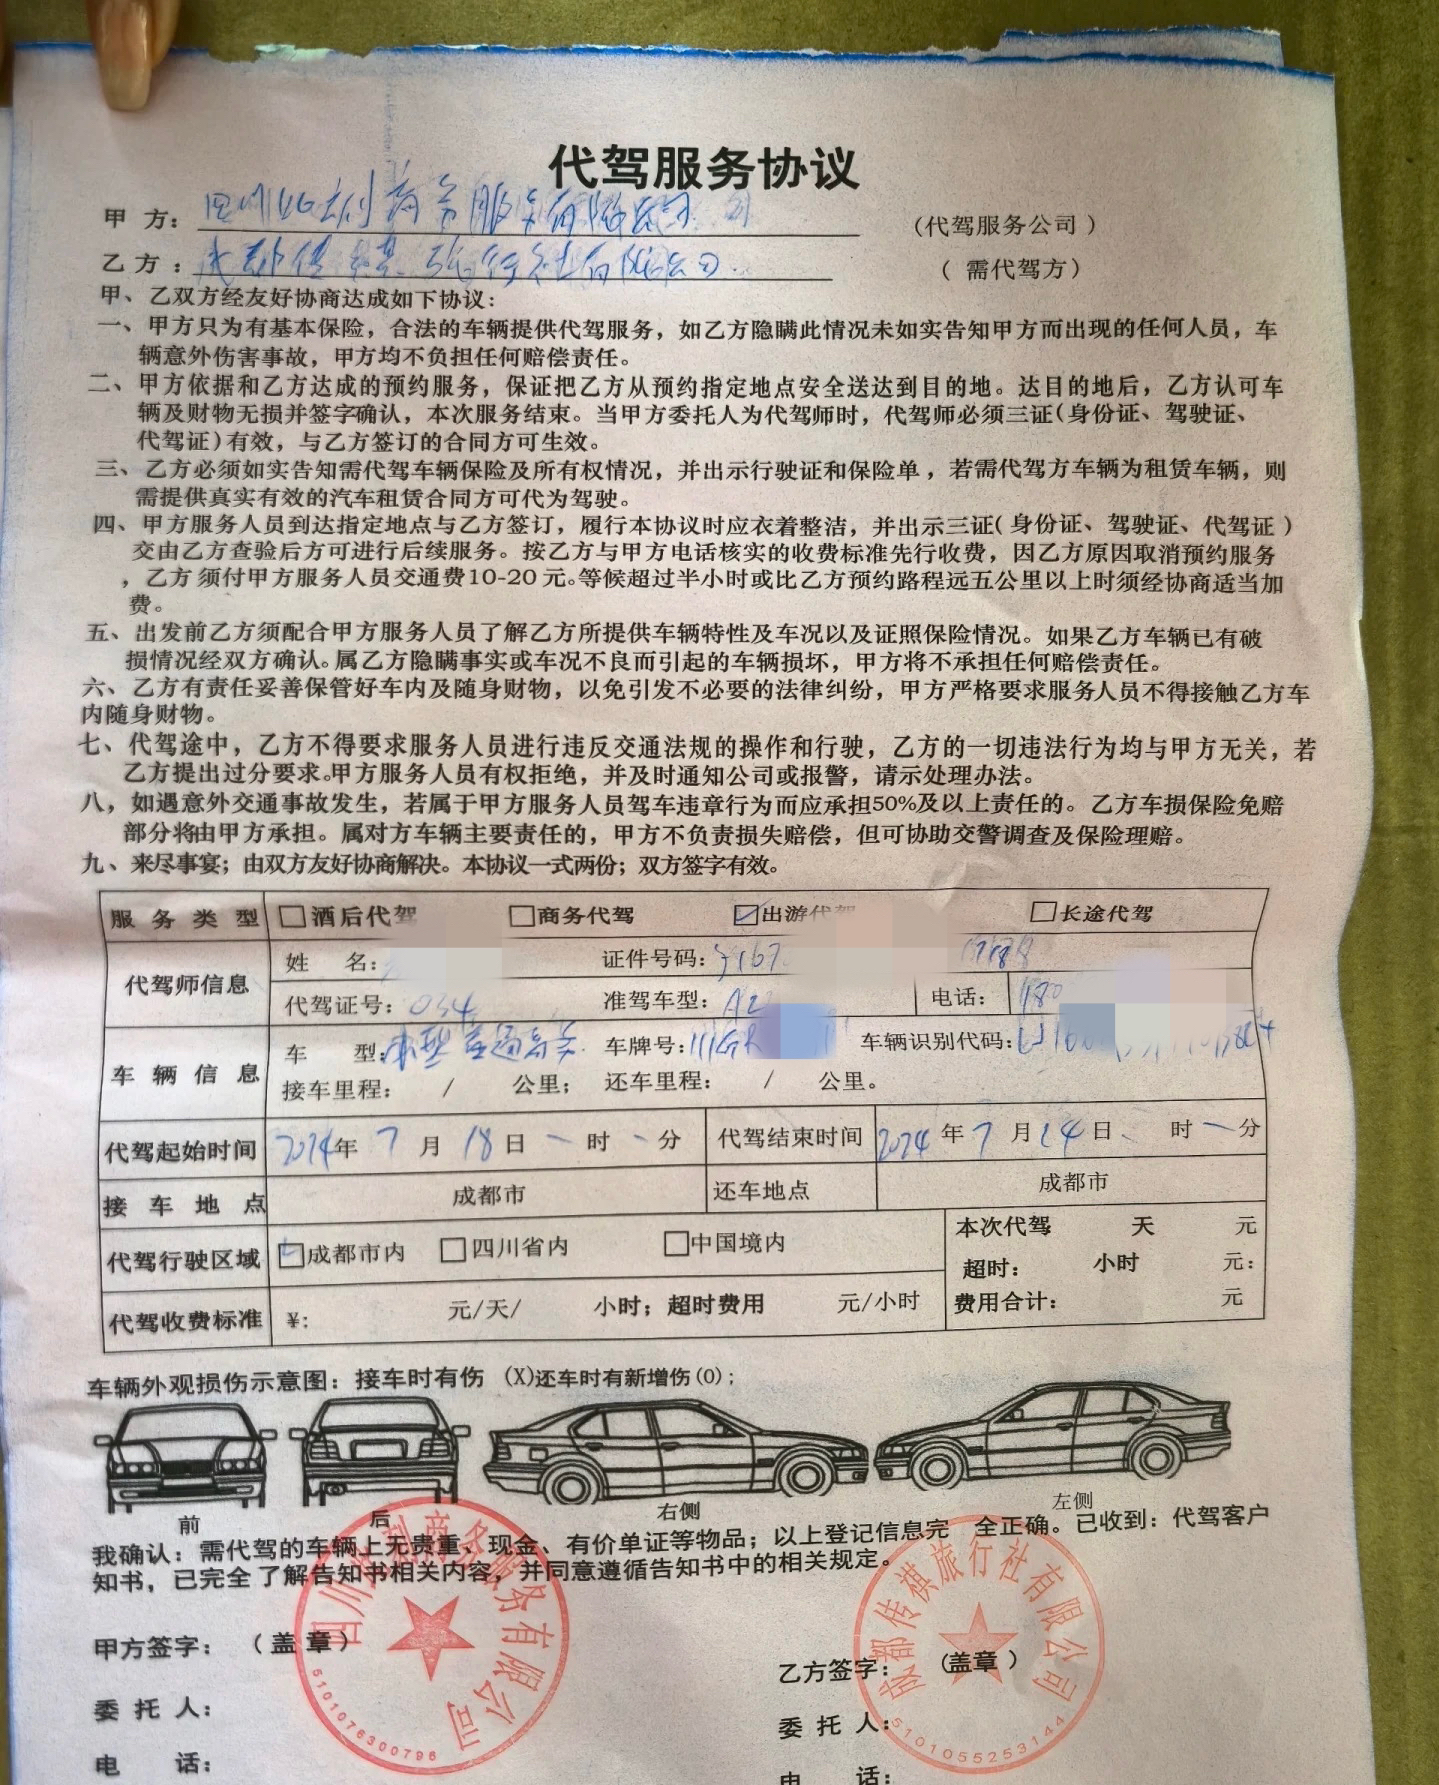 代驾服务协议
甲 方： 四川 商务服务有限公司 (代驾服务公司)
乙 方： 成都传祺旅行社有限公司 (需代驾方)
甲、乙双方经友好协商达成如下协议：
一、甲方只为有基本保险，合法的车辆提供代驾服务，如乙方隐瞒此情况未如实告知甲方而出现的任何人员，车
辆意外伤害事故，甲方均不负担任何赔偿责任。
二、甲方依据和乙方达成的预约服务，保证把乙方从预约指定地点安全送达到目的地。达目的地后，乙方认可车
辆及财物无损并签字确认，本次服务结束。当甲方委托人为代驾师时，代驾师必须三证(身份证、驾驶证、
代驾证)有效，与乙方签订的合同方可生效。
三、乙方必须如实告知需代驾车辆保险及所有权情况，并出示行驶证和保险单，若需代驾方车辆为租赁车辆，则
需提供真实有效的汽车租赁合同方可代为驾驶。
四、甲方服务人员到达指定地点与乙方签订，履行本协议时应衣着整洁，并出示三证(身份证、驾驶证、代驾证)
交由乙方查验后方可进行后续服务。按乙方与甲方电话核实的收费标准先行收费，因乙方原因取消预约服务
，乙方须付甲方服务人员交通费10-20元。等候超过半小时或比乙方预约路程远五公里以上时须经协商适当加
费。
五、出发前乙方须配合甲方服务人员了解乙方所提供车辆特性及车况以及证照保险情况。如果乙方车辆已有破
损情况经双方确认。属乙方隐瞒事实或车况不良而引起的车辆损坏，甲方将不承担任何赔偿责任。
六、乙方有责任妥善保管好车内及随身财物，以免引发不必要的法律纠纷，甲方严格要求服务人员不得接触乙方车
内随身财物。
七、代驾途中，乙方不得要求服务人员进行违反交通法规的操作和行驶，乙方的一切违法行为均与甲方无关，若
乙方提出过分要求。甲方服务人员有权拒绝，并及时通知公司或报警，请示处理办法。
八，如遇意外交通事故发生，若属于甲方服务人员驾车违章行为而应承担50%及以上责任的。乙方车损保险免赔
部分将由甲方承担。属对方车辆主要责任的，甲方不负责损失赔偿，但可协助交警调查及保险理赔。
九、来尽事宴；由双方友好协商解决。本协议一式两份；双方签字有效。
服务类型 □酒后代驾 □商务代驾 ☑出游代驾 □长途代驾
代驾师信息 姓 名： 证件号码：
代驾证号：034 准驾车型：A2 电话：180
车辆信息 车 型： 车牌号： 车辆识别代码：
接车里程： / 公里； 还车里程： / 公里。
代驾起始时间 2024年 7月 18日 一时 一分 代驾结束时间 2024年 7月 24日 、时 一分
接车地点 成都市 还车地点 成都市
代驾行驶区域 ☑成都市内 □四川省内 □中国境内 本次代驾 天 元
超时： 小时 元：
代驾收费标准 ¥： 元/天/ 小时；超时费用 元/小时 费用合计： 元
车辆外观损伤示意图：接车时有伤 (X)还车时有新增伤(O)；
前 后 右侧 左侧
我确认：需代驾的车辆上无贵重、现金、有价单证等物品；以上登记信息完 全正确。已收到：代驾客户
知书，已完全了解告知书相关内容，并同意遵循告知书中的相关规定。
甲方签字： (盖章) 乙方签字： (盖章)
委 托 人： 委 托 人：
电 话： 电 话：
四川 利商务服务有限公司
5101076300796
成都传祺旅行社有限公司
5101055253144